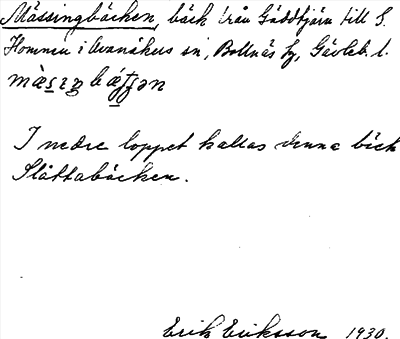 Mässingbäcken, bäck från Gäddtjärn till S.
Hommen i Ovanåkers sn, Bollnäs tg, Gävleb. l.
I nedre loppet kallas denna bäck
Slåttabäcken.
Erik Eriksson 1930.